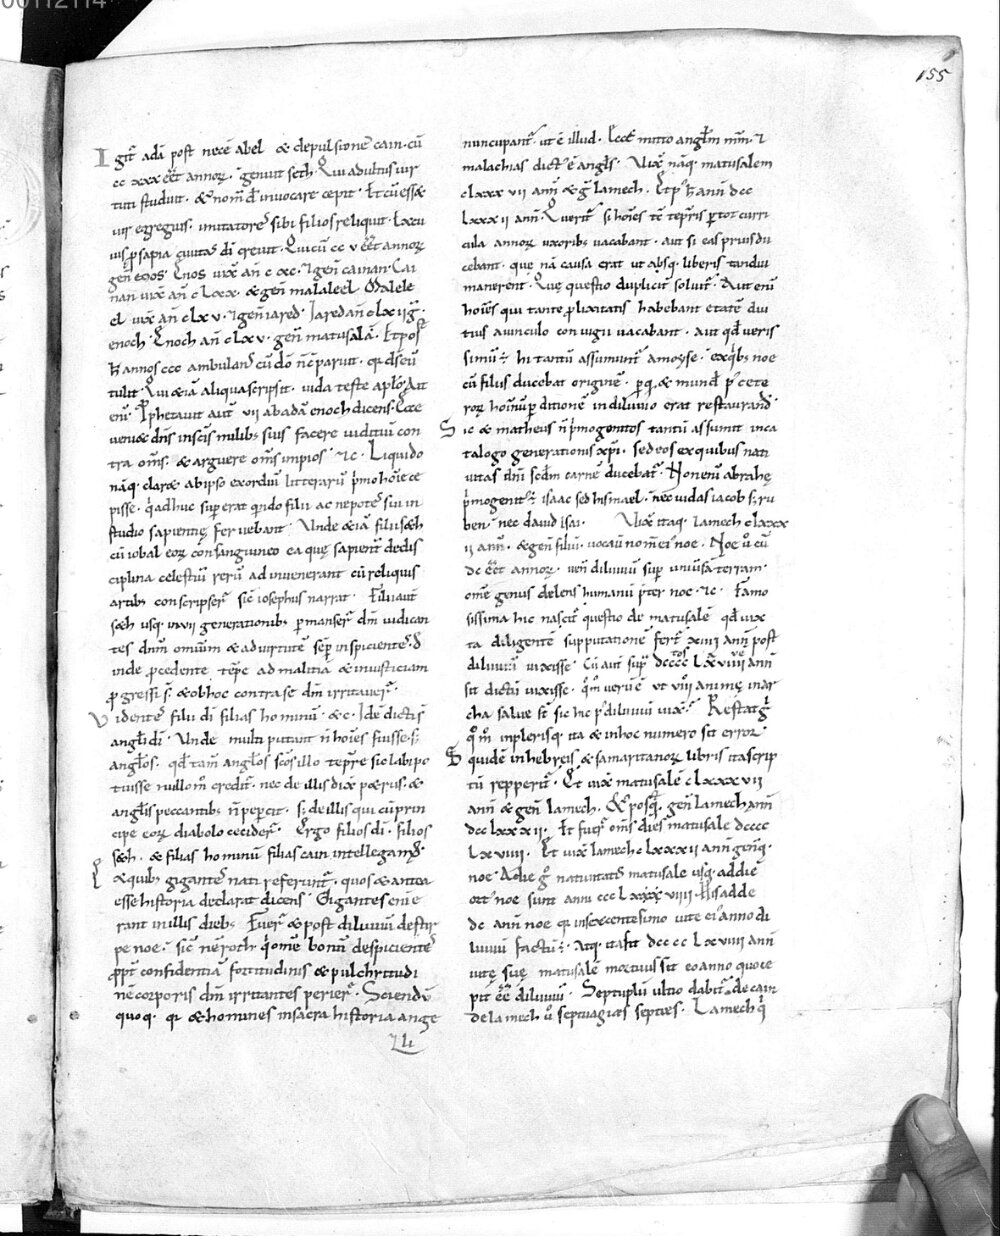 00112114
155
Igit̃ adā post necē abel & depulsionē cain. cū
cc xxx eēt annoꝝ. genuit seth. Qui adultus vir
tuti studuit. & nom̄ dī invocare cepit. Et cū esset
vir egregius. imitatores sibi filios reliquit. Ex cu
ius ꝓsapia civitas dī crevit. Qui cū cc v eēt annoꝝ
gen̄ enos. Enos vix̄ an̄ c xc. ⁊ gen̄ cainan. Cai
nan vix̄ an̄ c lxx. & gen̄ malaleel. Malele
el vix̄ an̄ c lx v. ⁊ gen̄ iared. Iared an̄ c lx ii g̃.
enoch. Enoch an̄ c lx v. gen̄ matusalā. Et post
h̄ annos ccc ambulans cū dō n̄ cparuit. qr ds̄ eū
tulit. Qui & iā aliqua scripsit. iuda teste aplō. Ait
eni. Ꝓphetavit aut̄ vii ab adā enoch dicens. Ecce
veniet dn̄s in scīs milib; suis facere iuditiū con
tra om̄s. & arguere om̄s impios ⁊c. Liquido
nāq. claret ab ipso exordiū litterarū p̄mo hoīe ce
pisse. q̇ adhuc sup erat q̇ndo filii ac nepotes sui in
studio sapientię fervebant. Unde & iā filii seth
cū iobal eoꝝ consanguineo ea quę sapient̄ dedis
ciplina celestiū rerū ad invenerant cū reliquis
artib; conscripser̄ sic iosephus narrat. Filii aut̄
seth usq. in vii generationib; ꝑmanser̄ dm̄ iudican
tes dnm̄ omniū & ad virtutē sēp inspicientes. d
inde ꝓcedente tēpe ad malitiā & iniusticiam
ꝓgressi s̄. & ob hoc contra se dm̄ irritaver̄.
Videntes filii dī filias hominū. & c. Idē dictis
angl̄i dī. Unde multi putant n̄ hoīes fuisse. s;
angl̄os. qd̄ tam̄ angl̄os scōs illo tēpre sic libipo
tuisse nullom̄ credit̄. nec de illis dix̄ poeris. &
angl̄is peccantib; n̄ pepcit. s; de illis qui cū prin
cipe eoꝝ diabolo cecider̄. Ergo filios dī. filios
seth. & filias hominū filias cain intellegam;.
Ex quib; gigantes nati referunt̄. quos & antea
esse historia declarat dicens. Gigantes eni e
rant in illis dieb;. Fuer̄ & post diluviū de stir
pe noe. sic nēroth qi ome bonū despicientes
ꝓpt confidentiā fortitudinis & pulchritudi
nē corporis dm̄ irritantes perier̄. Sciendū
quoq. qr & homines in sacra historia ange
⁊li
nuncupant̄. ut ē illud. Ecce mitto angl̄m m̄m. ⁊
malachias dict̄ ē angl̄s. Vix̄ nāq. matusalem
c lxxx vii ann̄ & g̃ lamech. Et p̄ h̄ ann̄ dcc
lxxx ii ann̄. Querit̄ si hoīes tc̄ tēpris ꝑ tot curri
cula annoꝝ uxorib; vacabant. aut si eas prius du
cebant. que nā causa erat ut absq. liberis tandiu
manerent. Que questio duplicit̄ solvit̄. Aut eni
hoīes qui tante ꝓlixitatis habebant etatē diu
tius a vinculo coniugii vacabant. Aut qd̄ veris
simil̄ ÷ hi tantū assumunt̄ a moyse. ex qb; noe
cū filiis ducebat originē. p̄ q. & mund̄ p̄ cete
roꝝ hoīnū ꝑditionē in diluvio erat restaurand̄.
Sic & matheus n̄ p̄mogenitos tantū assumit in ca
talogo generationis xpī. sed eos ex quibus nati
vitas dn̄i scd̄m carnē ducebat̄. Non eni abrahę
p̄mogenit̄ ÷ isaac sed hismael. nec iudas iacob s; ru
ben. nec david isai. Vix̄ itaq. lamech c lxxx
ii ann̄. & gen̄ filiū. vocavit nom̄ ei noe. Noe ū cū
dc eēt annoꝝ. ven̄ diluviū sup univ̄sā terram.
omē genus delens humanū p̄ter noe. ⁊c. Famo
sissima hic nascit̄ questio de matusalē. qd̄ iux
ta diligentē supputationē fert̄ xiiii ann̄ post
diluviū vixisse. Cū aut̄ sup̄ dcccc lx viiii ann̄
sit dictū vixisse. qm̄ verū ē ut viii animę in ar
cha salve st̄ sic hic p̄ diluviū vix̄. Restat g̃
qm̄ in plerisq. ita & in hoc numero sit error.
Siquidē in hebreis & samaritanoꝝ libris ita scrip
tū repperit̄. Et vix̄ matusalē c lxxx vii
ann̄ & gen̄ lamech. & posq̄ gen̄ lamech ann̄
dcc lxxx ii. Et fuer̄ om̄s dies matusale dcccc
lx viiii. Et vix̄ lamech c lxxx ii ann̄ genq.
noe. A die g̃ nativitatis matusale usq. ad diē
ort noe sunt anni ccc lxviiii. His adde
dc ann̄ noe qr in sexcentesimo vite ei anno di
luviū factū ÷. Atq. ita fit dcccc lx viiii ann̄
vitę suę matusalē mortuus sit eo anno quo ce
pit eē diluviū. Septuplū ultio dabit̄ de cain
de lamech ū septuagies septies. Lamech qi